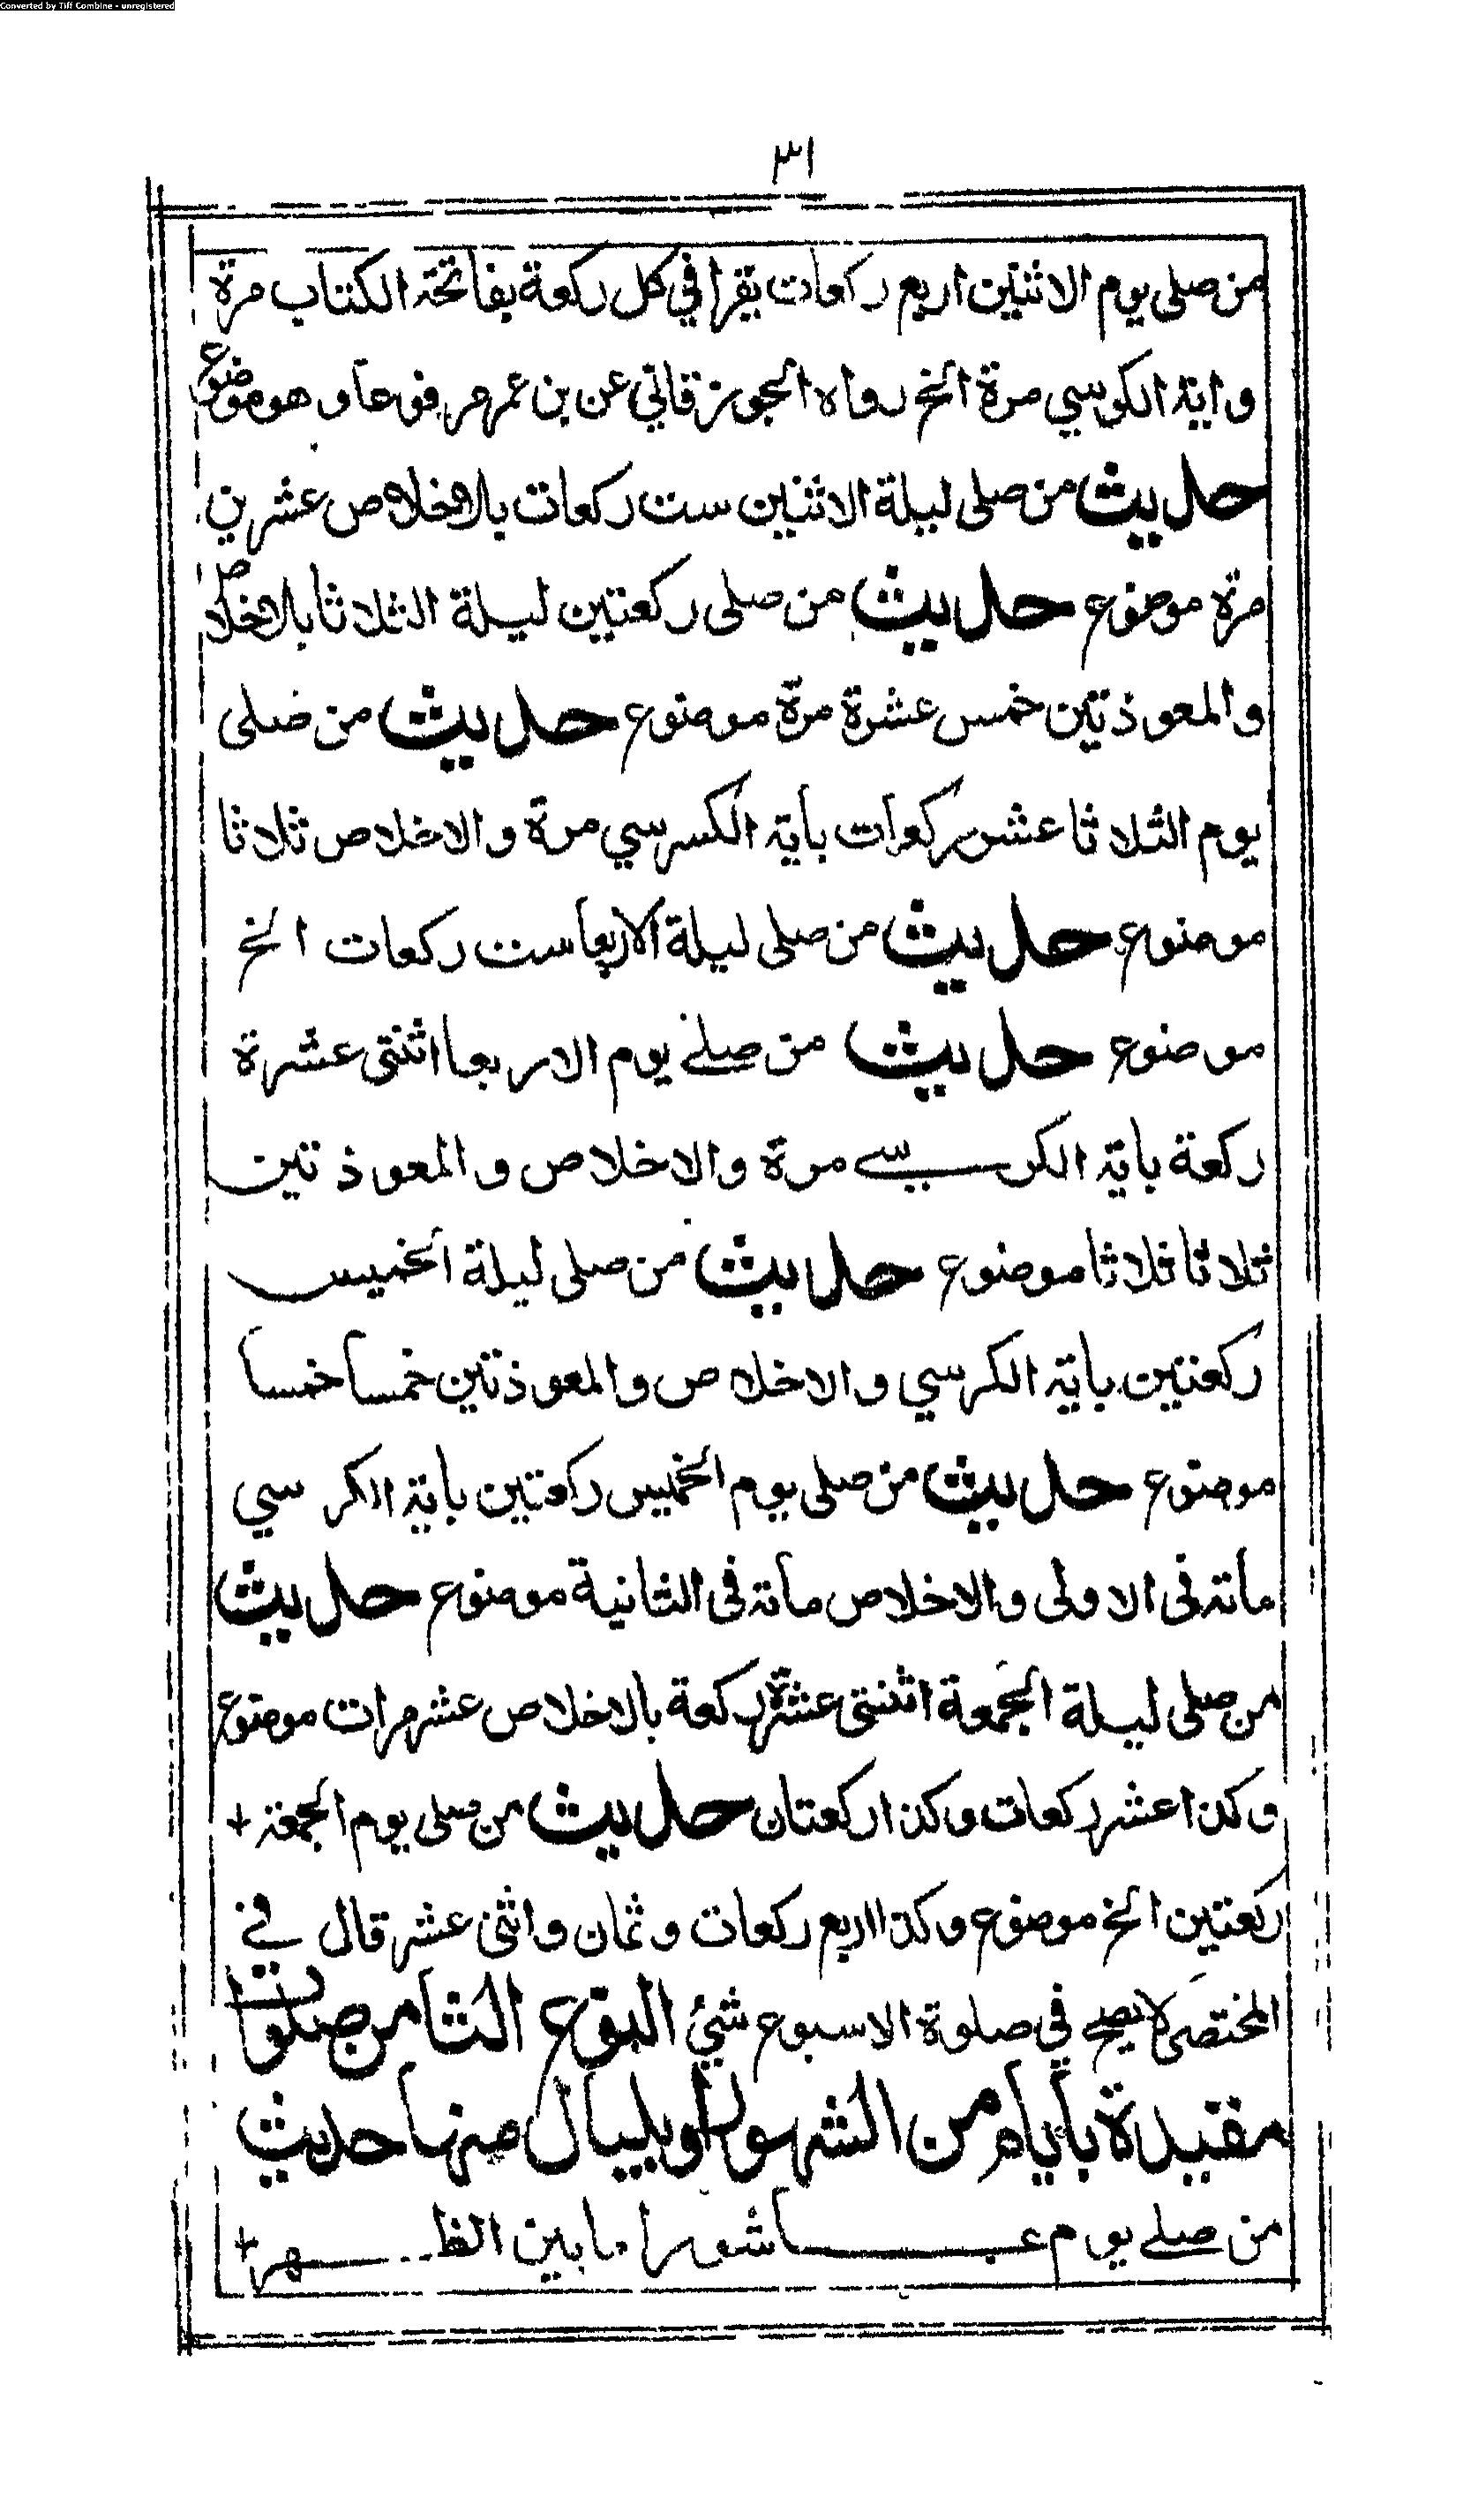 Converted by Tiff Combine - unregistered
٣١
من صلى يوم الاثنين اربع ركعات يقرا في كل ركعة بفاتحة الكتاب مرة
واية الكرسي مرة الخ رواه الجوزقاني عن بن عمر مرفوعا و هو موضوع
حديث من صلى ليلة الاثنين ست ركعات بالاخلاص عشرين
مرة موضوع حديث من صلى ركعتين ليلة الثلاثا بالاخلاص
والمعوذتين خمس عشرة مرة موضوع حديث من صلى
يوم الثلاثا عشر ركعات بأية الكرسي مرة والاخلاص ثلاثا
موضوع حديث من صلى ليلة الاربعا ست ركعات الخ
موضوع حديث من صلے يوم الاربعا اثنتى عشرة
ركعة بأية الكرسے مرة والاخلاص والمعوذتين
ثلاثا ثلاثا موضوع حديث من صلى ليلة الخميس
ركعتين بأية الكرسي والاخلاص والمعوذتين خمسا خمسا
موضوع حديث من صلى يوم الخميس ركعتين بأية الكرسي
مأتة فى الاولى والاخلاص مأتة فى الثانية موضوع حديث
من صلى ليلة الجمعة اثنتى عشرة ركعة بالاخلاص عشر مرات موضوع
وكذا عشر ركعات وكذا ركعتان حديث من صلى يوم الجمعة +
ركعتين الخ موضوع وكذا اربع ركعات وثمان واثنى عشر قال في
المختصر لا يصح في صلوة الاسبوع شئ النوع الثامن صلوات
مقيدة بأيام من الشهور او بليال منها حديث
من صلے يوم عاشورا ما بين الظهر +